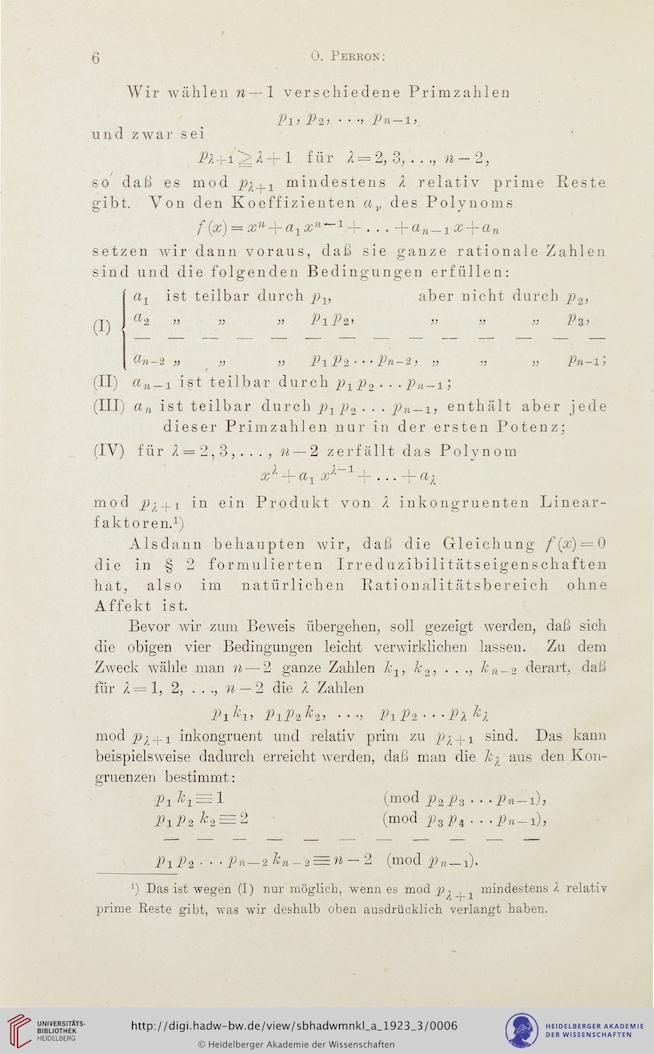 6 O. PERRON:
Wir wählen n — 1 verschiedene Primzahlen
p₁, p₂, . . ., pₙ₋₁,
und zwar sei
p_{λ+1} ≧ λ + 1 für λ = 2, 3, . . ., n — 2,
so daß es mod p_{λ+1} mindestens λ relativ prime Reste
gibt. Von den Koeffizienten a_ν des Polynoms
f (x) = xⁿ + a₁ xⁿ⁻¹ + . . . + aₙ₋₁ x + aₙ
setzen wir dann voraus, daß sie ganze rationale Zahlen
sind und die folgenden Bedingungen erfüllen:
a₁ ist teilbar durch p₁, aber nicht durch p₂,
(I) a₂ „ „ „ p₁ p₂, „ „ „ p₃,
— — — — — — — — — — — — —
aₙ₋₂ „ „ „ p₁ p₂ · · · pₙ₋₂, „ „ „ pₙ₋₁;
(II) aₙ₋₁ ist teilbar durch p₁ p₂ . . . pₙ₋₁;
(III) aₙ ist teilbar durch p₁ p₂ . . . pₙ₋₁, enthält aber jede
dieser Primzahlen nur in der ersten Potenz;
(IV) für λ = 2, 3, . . . , n — 2 zerfällt das Polynom
x^λ + a₁ x^{λ−1} + . . . + a_λ
mod p_{λ+1} in ein Produkt von λ inkongruenten Linear-
faktoren.¹)
Alsdann behaupten wir, daß die Gleichung f (x) = 0
die in § 2 formulierten Irreduzibilitätseigenschaften
hat, also im natürlichen Rationalitätsbereich ohne
Affekt ist.
Bevor wir zum Beweis übergehen, soll gezeigt werden, daß sich
die obigen vier Bedingungen leicht verwirklichen lassen. Zu dem
Zweck wähle man n — 2 ganze Zahlen k₁, k₂, . . ., kₙ₋₂ derart, daß
für λ = 1, 2, . . ., n — 2 die λ Zahlen
p₁ k₁, p₁ p₂ k₂, · · ·, p₁ p₂ · · · p_λ k_λ
mod p_{λ+1} inkongruent und relativ prim zu p_{λ+1} sind. Das kann
beispielsweise dadurch erreicht werden, daß man die k_λ aus den Kon-
gruenzen bestimmt:
p₁ k₁ ≡ 1 (mod p₂ p₃ . . . pₙ₋₁),
p₁ p₂ k₂ ≡ 2 (mod p₃ p₄ . . . pₙ₋₁),
— — — — — — — — — — — —
p₁ p₂ . . . pₙ₋₂ kₙ₋₂ ≡ n — 2 (mod pₙ₋₁).
¹) Das ist wegen (I) nur möglich, wenn es mod p_{λ+1} mindestens λ relativ
prime Reste gibt, was wir deshalb oben ausdrücklich verlangt haben.
UNIVERSITÄTS-
BIBLIOTHEK
HEIDELBERG
http://digi.hadw-bw.de/view/sbhadwmnkl_a_1923_3/0006
© Heidelberger Akademie der Wissenschaften
HEIDELBERGER AKADEMIE
DER WISSENSCHAFTEN